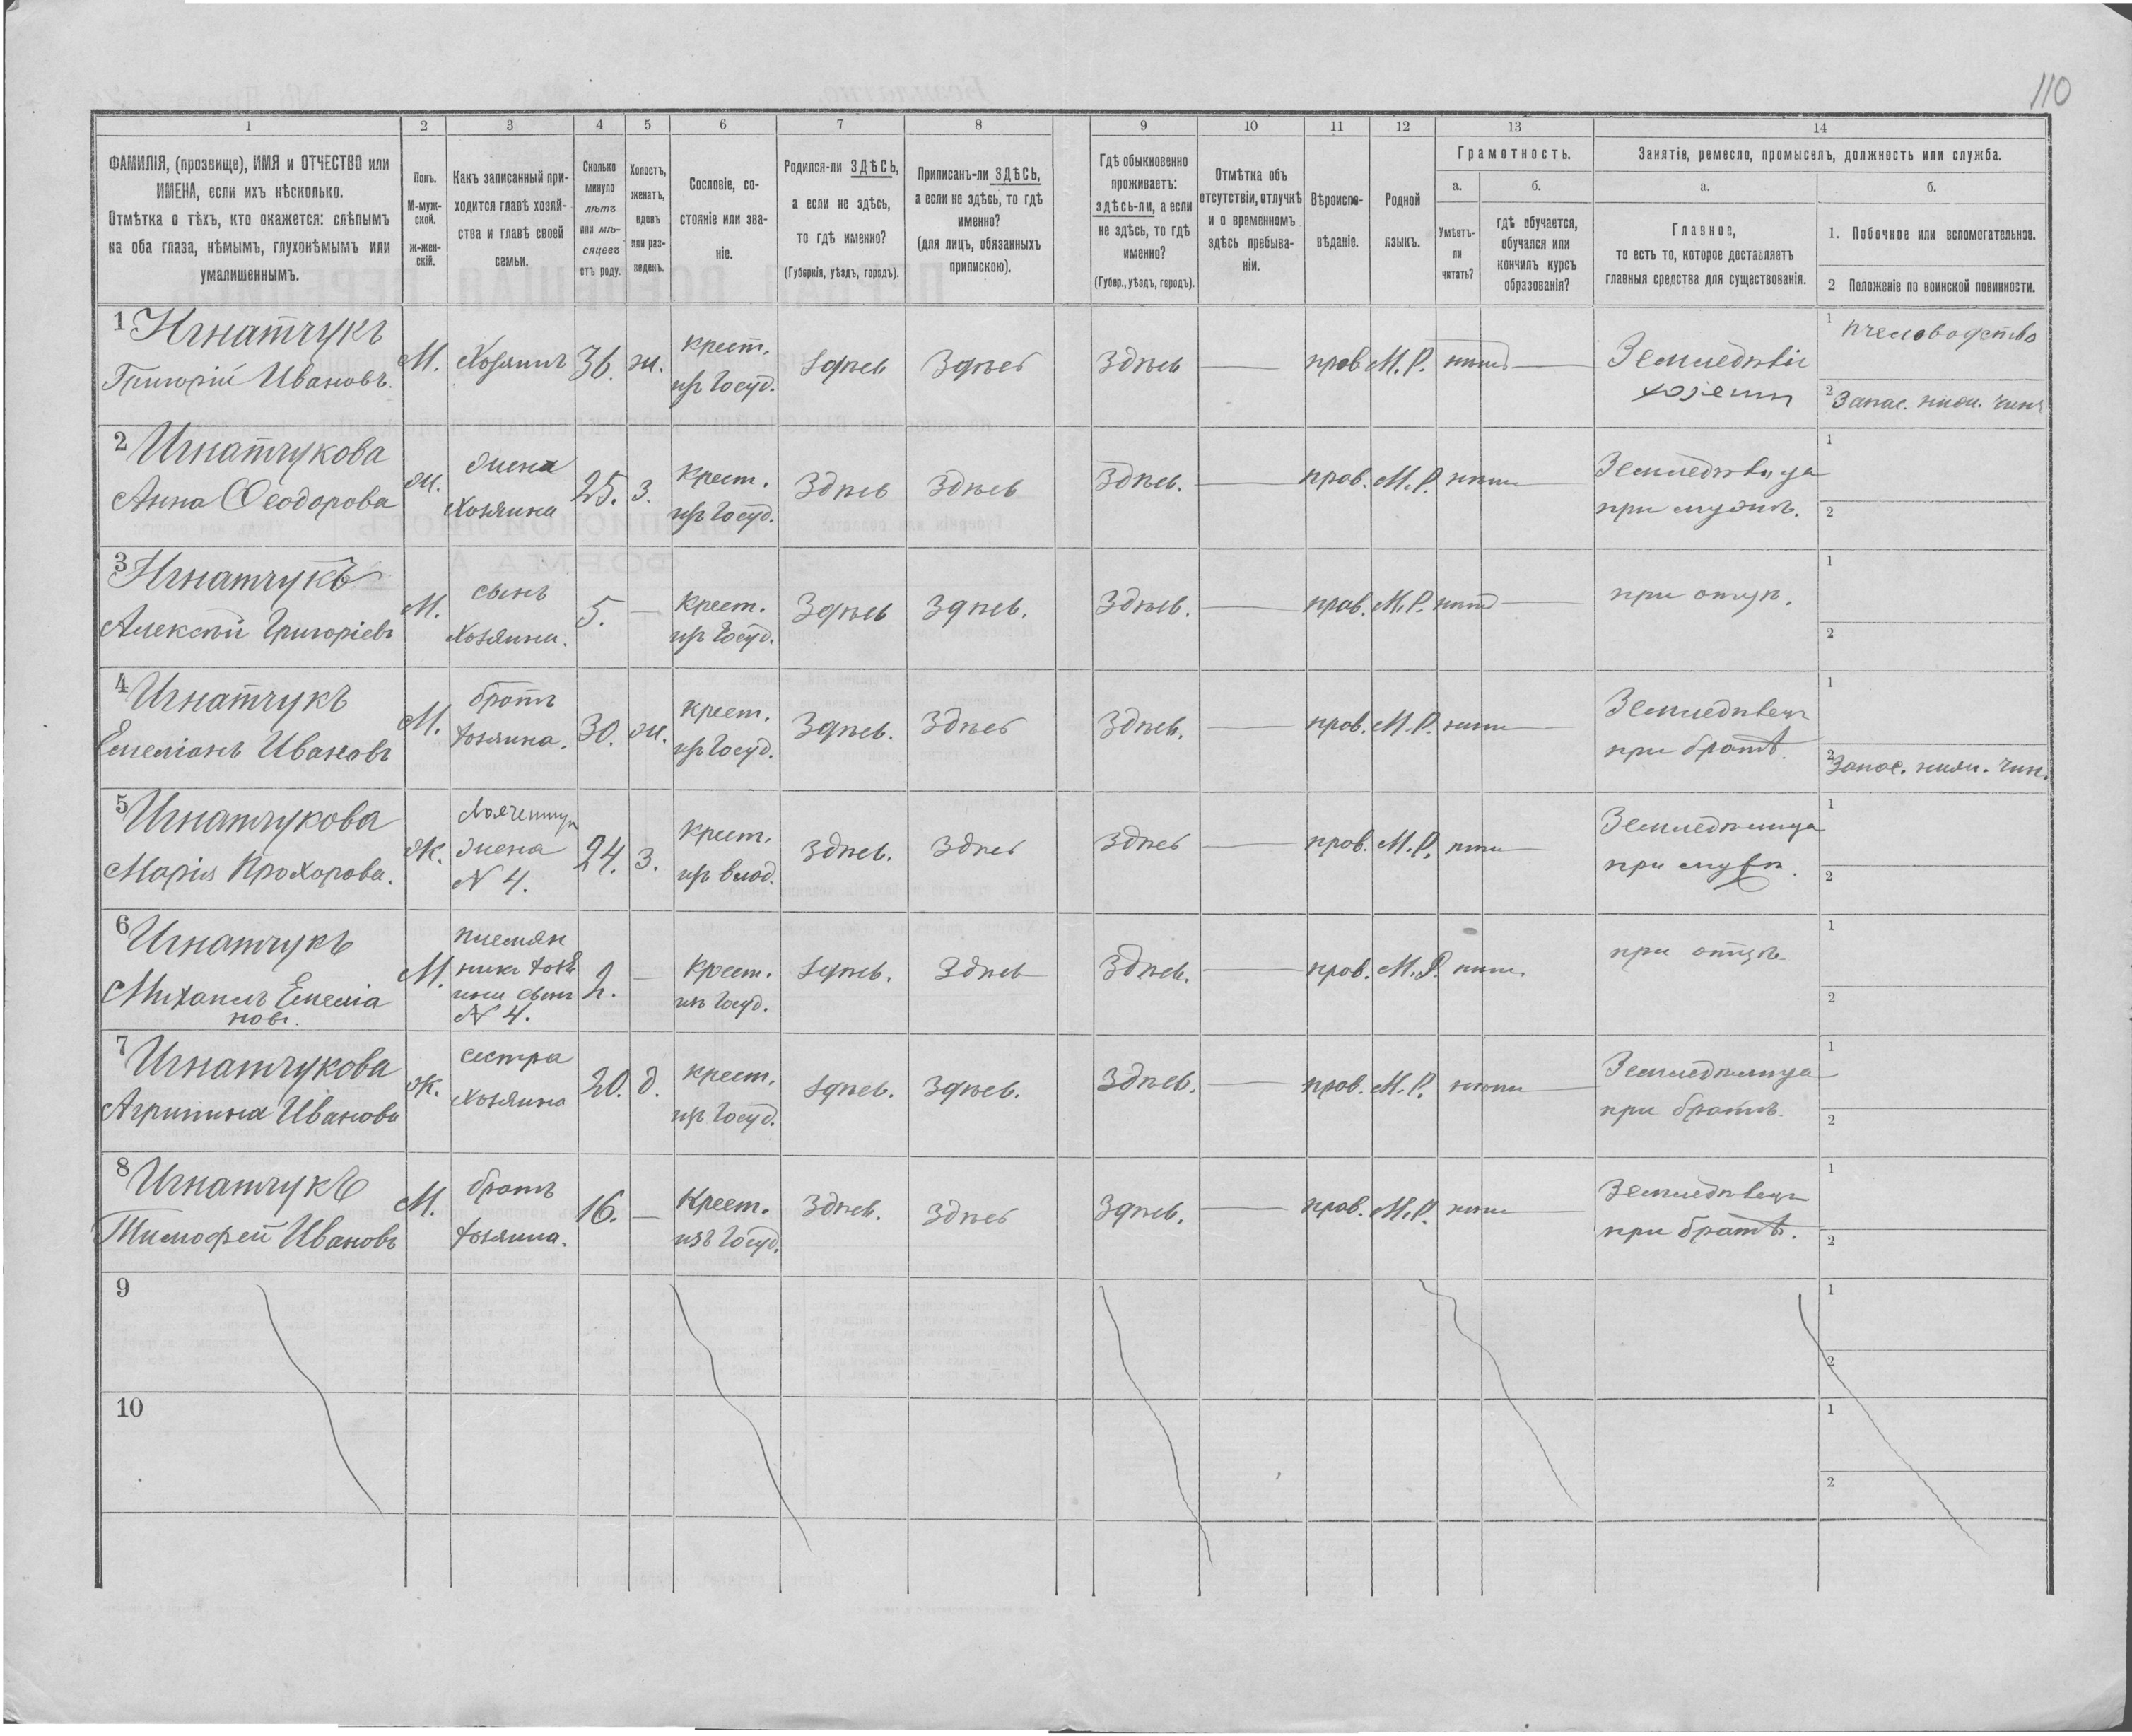 110
1
2
3
4
5
6
7
8
9
10
11
12
13
14
ФАМИЛІЯ, (прозвище), ИМЯ и ОТЧЕСТВО или
ИМЕНА, если ихъ нѣсколько.
Отмѣтка о тѣхъ, кто окажется: слѣпымъ
на оба глаза, нѣмымъ, глухонѣмымъ или
умалишеннымъ.
Полъ.
М-муж-
ской.
Ж-жен-
скій.
Какъ записанный при-
ходится главѣ хозяй-
ства и главѣ своей
семьи.
Сколько
минуло
лѣтъ
или мѣ-
сяцевъ
отъ роду.
Холостъ,
женатъ,
вдовъ
или раз-
веденъ.
Сословіе, со-
стояніе или зва-
ніе.
Родился-ли ЗДѢСЬ,
а если не здѣсь,
то гдѣ именно?
(Губернія, уѣздъ, городъ).
Приписанъ-ли ЗДѢСЬ,
а если не здѣсь, то гдѣ
именно?
(для лицъ, обязанныхъ
припискою).
Гдѣ обыкновенно
проживаетъ:
здѣсь-ли, а если
не здѣсь, то гдѣ
именно?
(Губер., уѣздъ, городъ).
Отмѣтка объ
отсутствіи, отлучкѣ
и о временномъ
здѣсь пребыва-
ніи.
Вѣроиспо-
вѣданіе.
Родной
языкъ.
Грамотность.
а.
Умѣетъ-
ли
читать?
б.
гдѣ обучается,
обучался или
кончилъ курсъ
образованія?
Занятія, ремесло, промыселъ, должность или служба.
а.
Главное,
то есть то, которое доставляетъ
главныя средства для существованія.
б.
1. Побочное или вспомогательное.
2 Положеніе по воинской повинности.
1 Игнатчукъ
Григорій Ивановъ.
М.
Хозяинъ
36.
ж.
крест.
изъ Госуд.
Здѣсь
Здѣсь
Здѣсь
прав.
М. Р.
нѣтъ
Земледѣліе
хозяинъ
1 пчеловодство
2 Запас. ниж. чинъ
2 Игнатчукова
Анна Ѳеодорова
ж.
жена
Хозяина
25.
З.
крест.
изъ Госуд.
Здѣсь
Здѣсь
Здѣсь.
прав.
М. Р.
нѣтъ
при мужѣ.
1
2
3 Игнатчукъ
Алексѣй Григоріевъ
М.
сынъ
Хозяина.
5.
крест.
изъ Госуд.
Здѣсь
Здѣсь.
Здѣсь.
прав.
М. Р.
нѣтъ
при отцѣ.
1
2
4 Игнатчукъ
Емеліанъ Ивановъ
М.
братъ
Хозяина.
30.
ж.
крест.
изъ Госуд.
Здѣсь.
Здѣсь
Здѣсь.
прав.
М. Р.
нѣтъ
Земледѣлецъ
при братѣ.
1
2 Запас. ниж. чин.
5 Игнатчукова
Марія Прохорова.
Ж.
жена
N 4.
24.
З.
крест.
Здѣсь.
Здѣсь
Здѣсь
прав.
М. Р.
нѣтъ
Земледѣлица
при мужѣ.
1
2
6 Игнатчукъ
Михаилъ Емеліа
новъ.
М.
племян
никъ хозя
ина сынъ
N 4.
2.
крест.
изъ Госуд.
Здѣсь.
Здѣсь
Здѣсь.
прав.
М. Р.
нѣтъ.
при отцѣ
1
2
7 Игнатчукова
Агрипина Иванова
Ж.
сестра
Хозяина
20.
д.
крест.
изъ Госуд.
Здѣсь.
Здѣсь.
Здѣсь.
прав.
М. Р.
нѣтъ
Земледѣлица
при братѣ.
1
2
8 Игнатчукъ
Тимофей Ивановъ
М.
братъ
Хозяина.
16.
Крест.
изъ Госуд.
Здѣсь.
Здѣсь
Здѣсь.
прав.
М. Р.
нѣтъ
Земледѣлецъ
при братѣ.
1
2
9
1
2
10
1
2